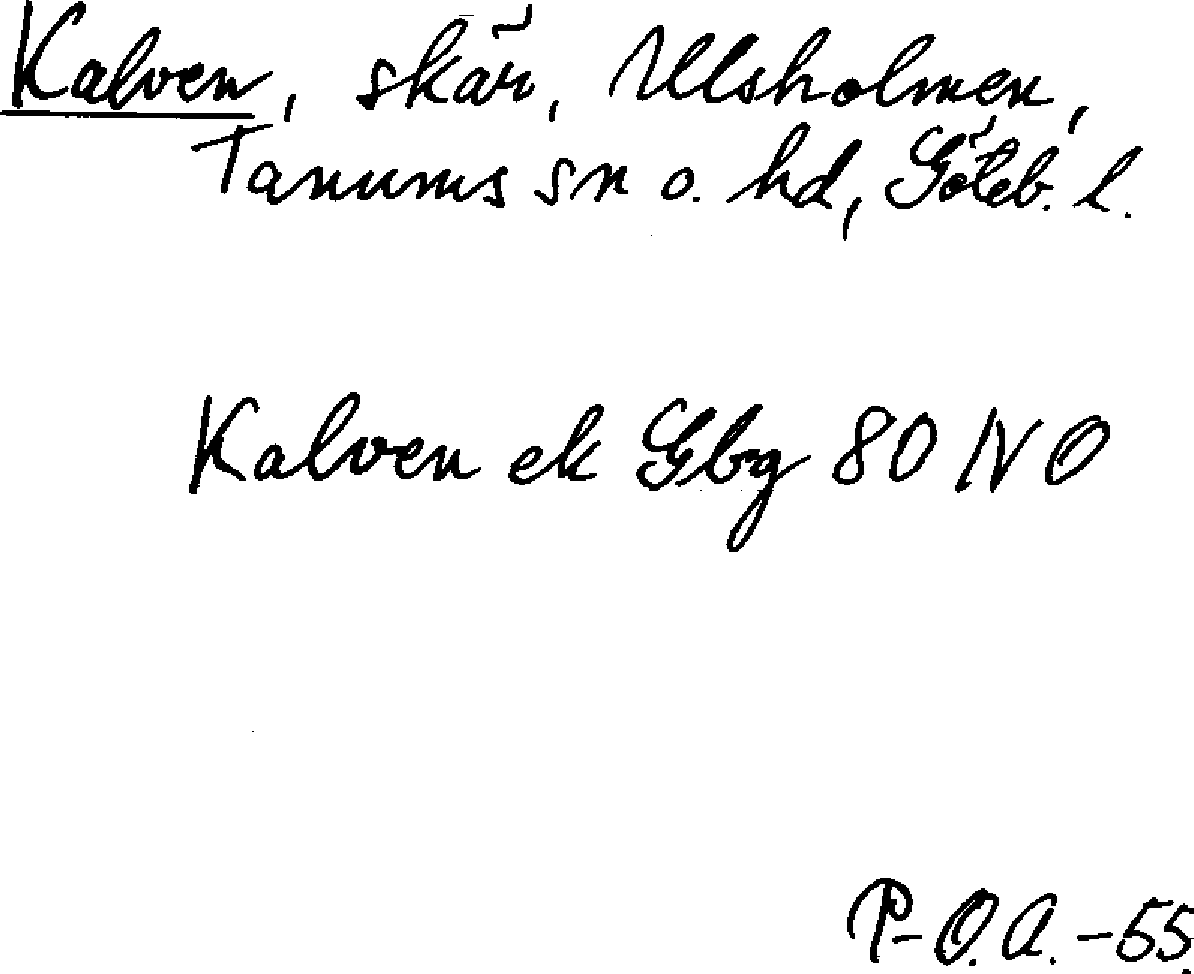 Kalven, skär, Ulsholmen,
Tanums sn o. hd, Göteb. l.
Kalven ek Gbg 80 NO
P-O.A. -55